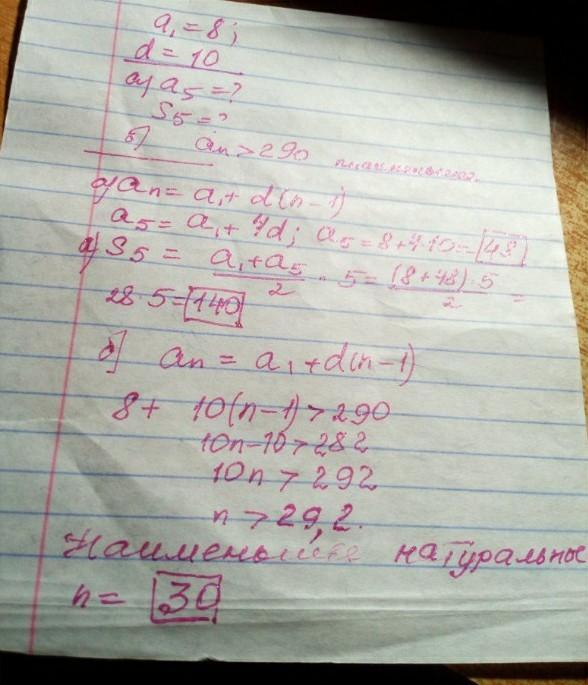 a₁ = 8;
d = 10
а) a₅ = ?
S₅ = ?
б) aₙ > 290
а) aₙ = a₁ + d(n-1)
a₅ = a₁ + 4d; a₅ = 8 + 4·10 = 48
а) S₅ = (a₁ + a₅)/2 · 5 = (8 + 48)·5/2 =
28·5 = 140
б] aₙ = a₁ + d(n-1)
8 + 10(n-1) > 290
10n-10 > 282
10n > 292
n > 29,2.
Наименьшее натуральные
n = 30